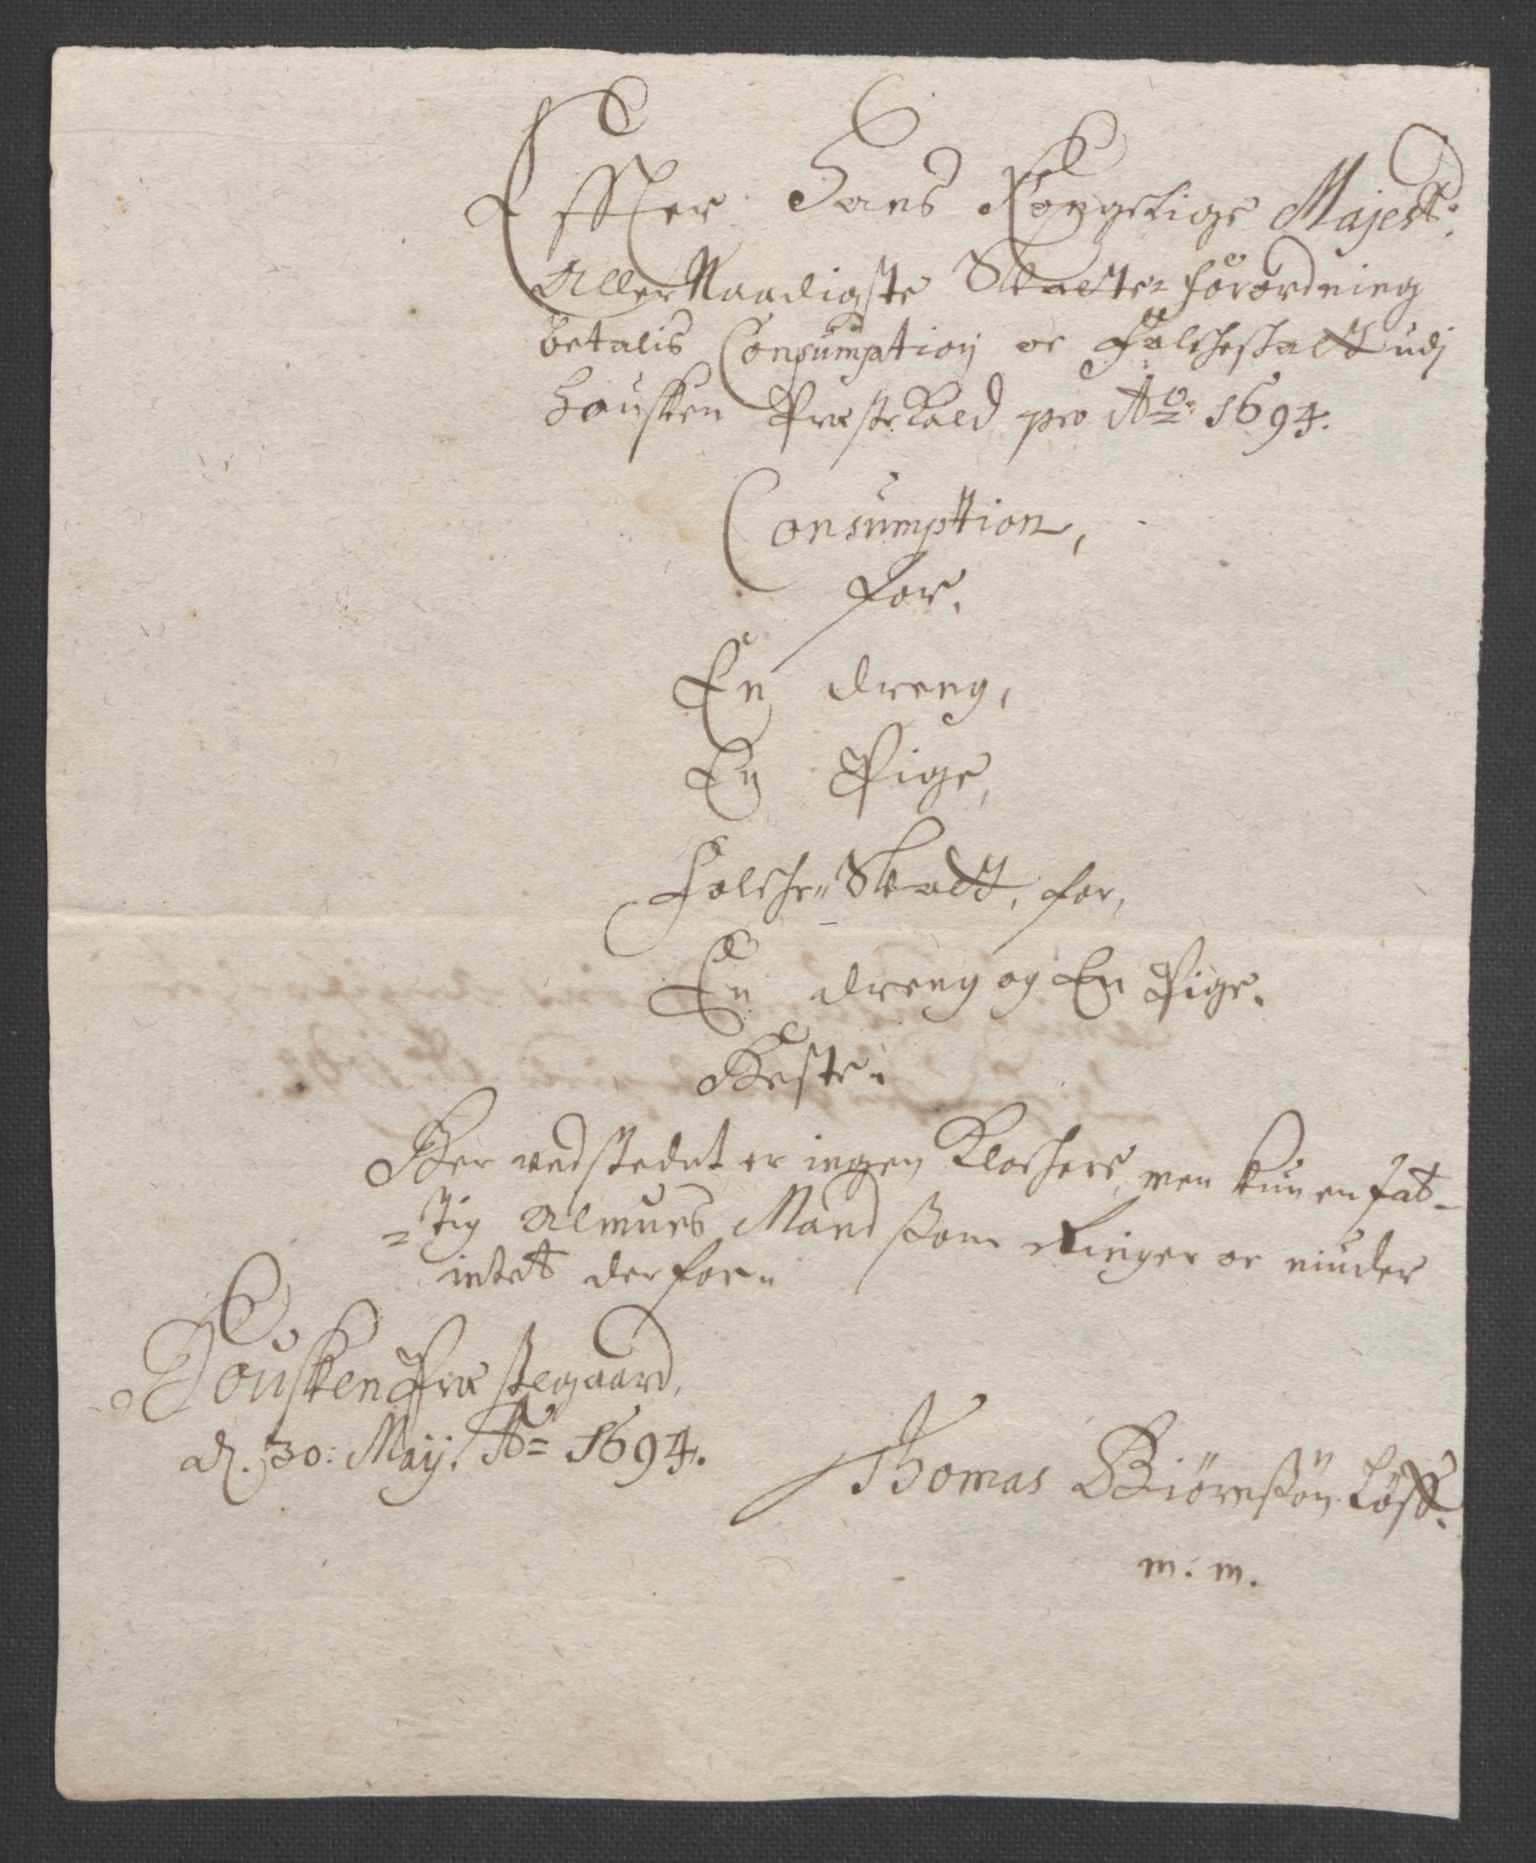 Effter Hans Kongelige Majestt:
Aller Naadigste Skatter forordning
betalis Consumption oc Folcheskatt udj
Housken Præstekald pro Ao: 1694.
Consumpttion,
for.
En dreng,
En Pige,
Folche=Skatt, for,
En dreng og En Pige.
Heste.
Her ved stedet er ingen Klochere, men kun en fat=
=tig Almues Mand ssom Ringer oc niuder
intet derfor.
Housken Præstegaard,
d. 30: Maij. Ao 1694.
Thomas Biörnssön
m. m.